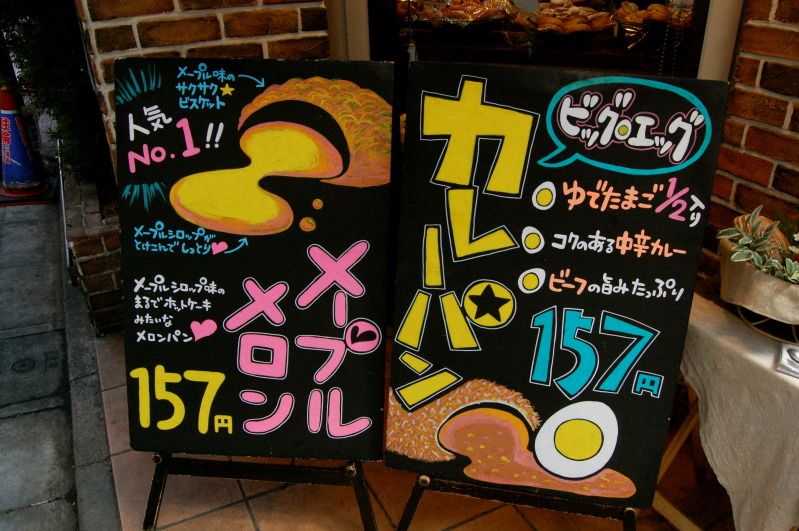 メープル味の
サクサク★
ビスケット
人気
No.1!!
メープルシロップが
とけこんでしっとり
メープルシロップ味の
まるでホットケーキ
みたいな
メロンパン
メープル
メロン
157円
カレーパン
ビッグ・エッグ
ゆでたまご1/2入り
コクのある中辛カレー
ビーフの旨みたっぷり
157円